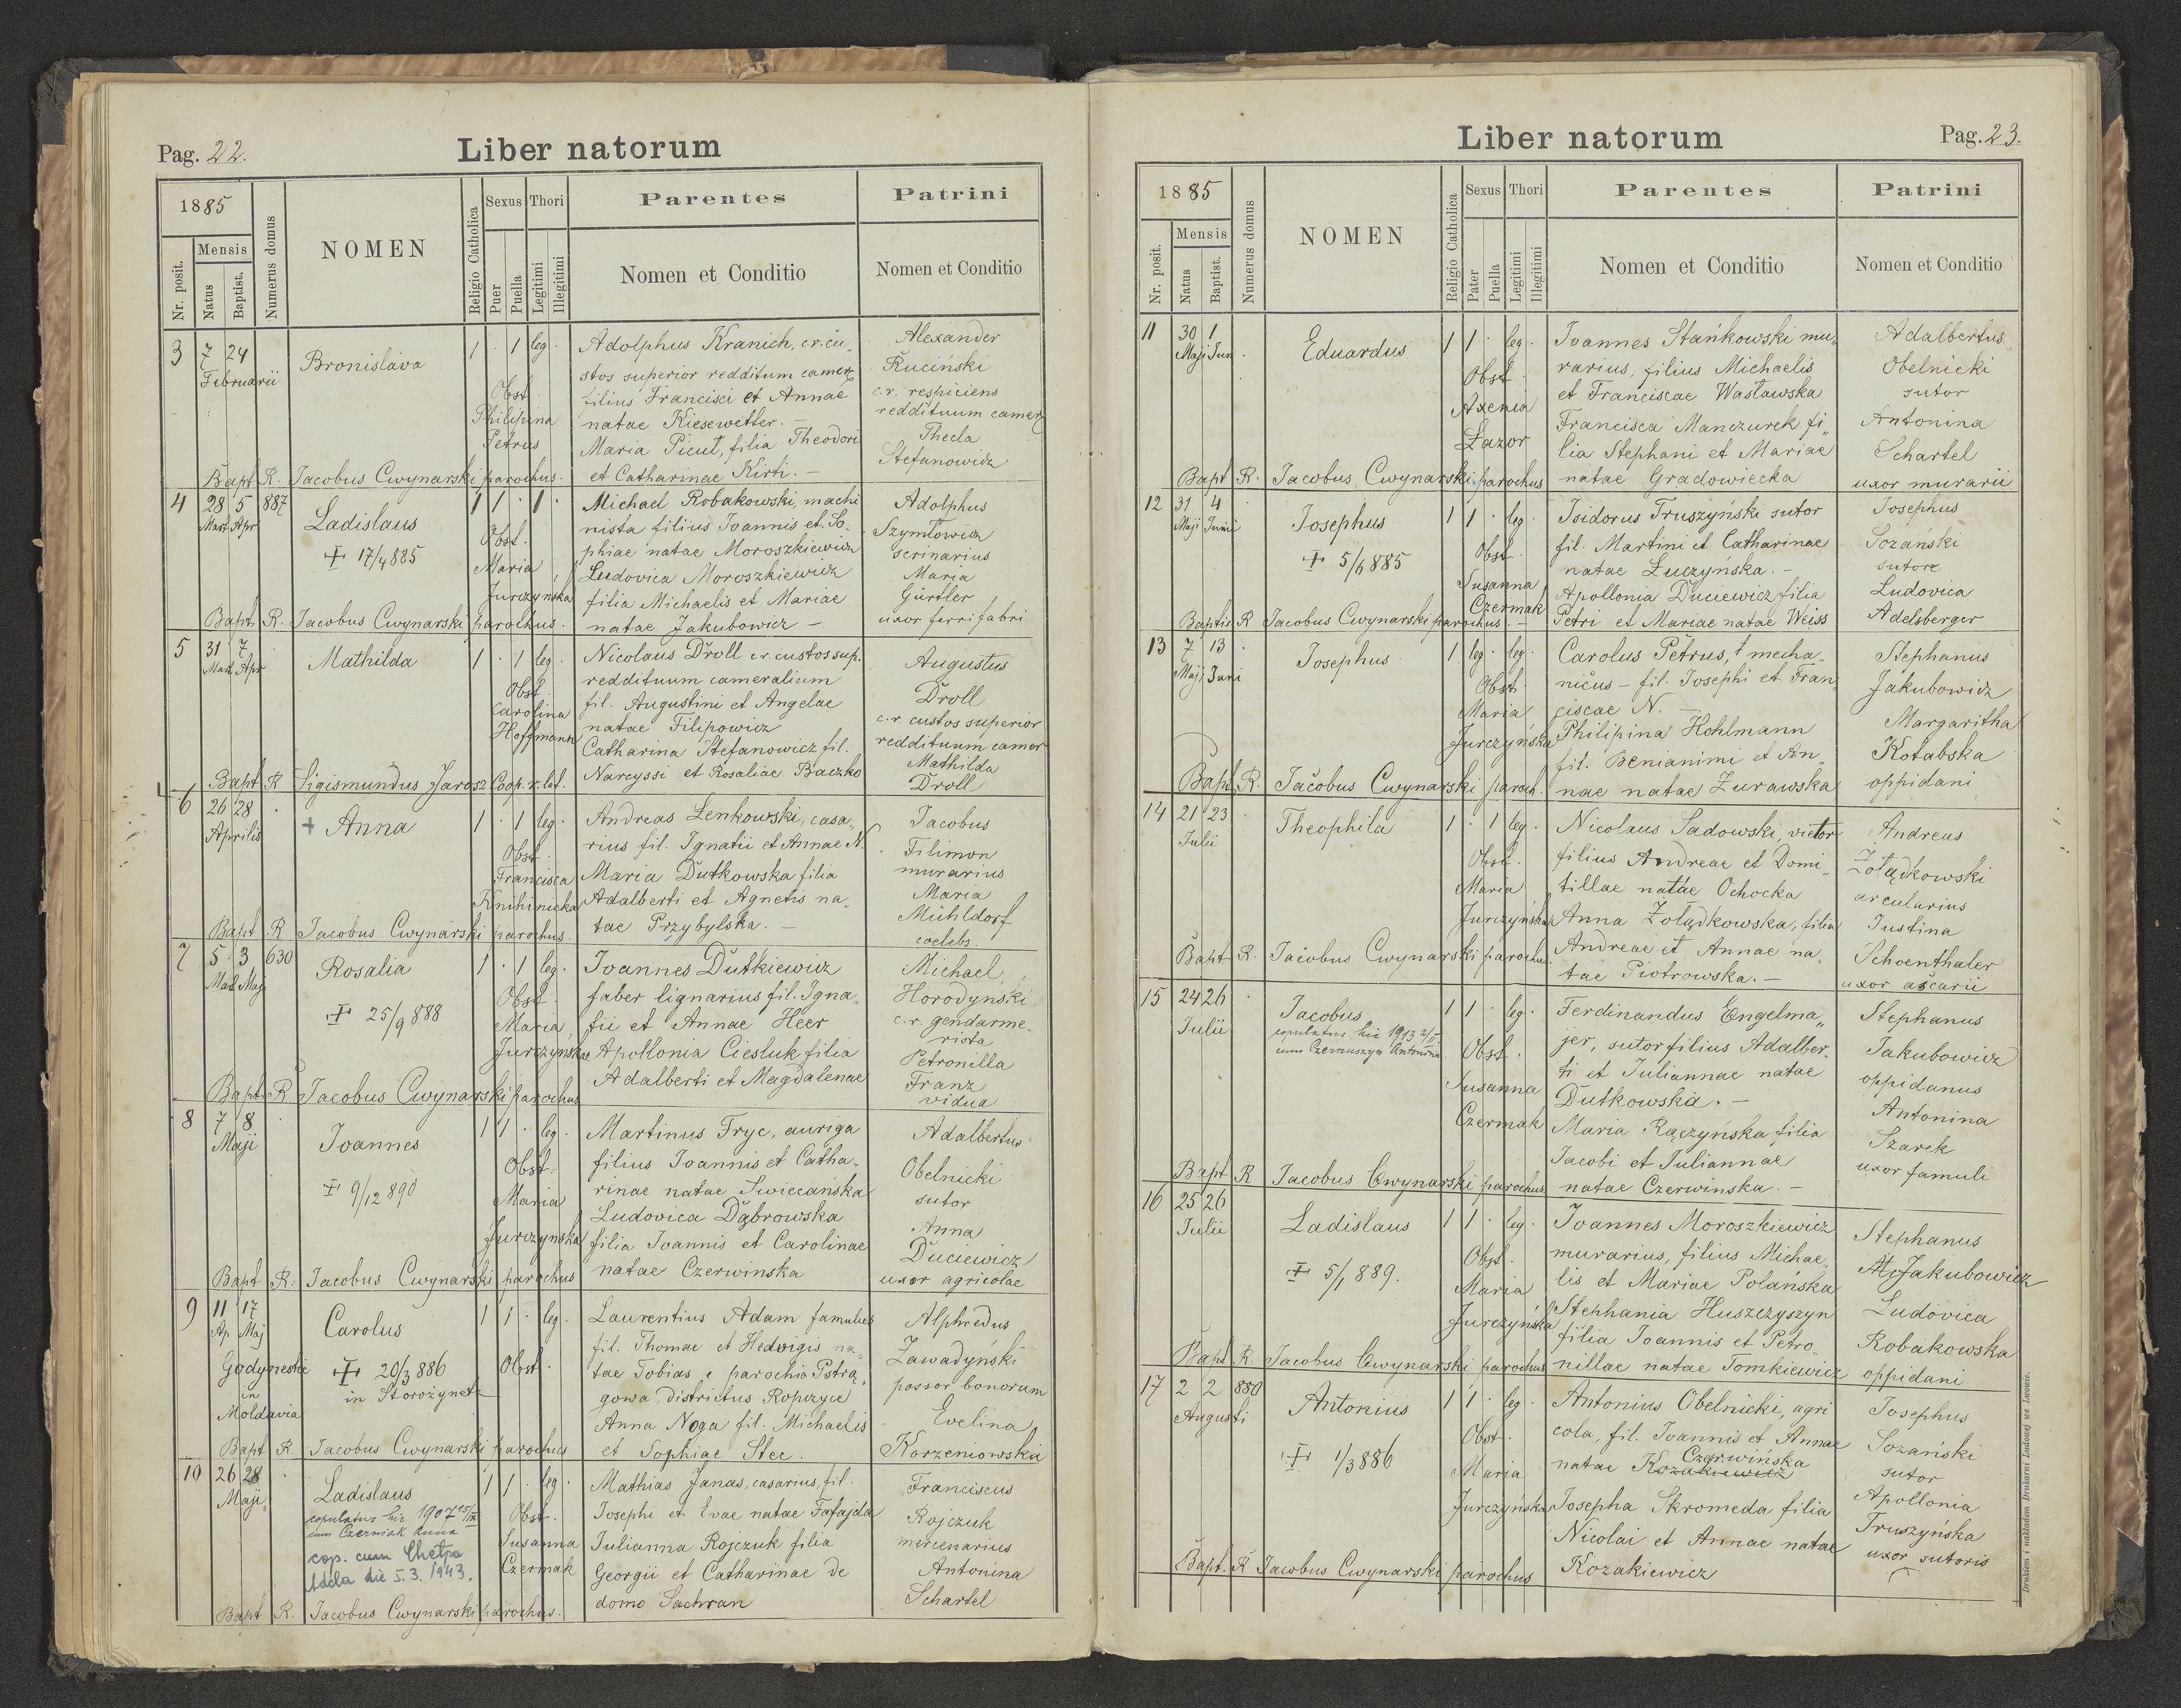 Pag. 22.
Liber natorum
1885
Mensis
Nr. posit.
Natus
Baptist.
Numerus domus
NOMEN
Religio Catholica
Sexus
Puer
Puella
Thori
Legitimi
Illegitimi
Parentes
Nomen et Conditio
Patrini
Nomen et Conditio
3
7 24
Februarii
Bronislava
1 · 1 leg ·
Obst.
Philipina
Petrus
Adolphus Kranich, c.r. cu„
stos superior reddituum camer
filius Francisci et Annae
natae Kiesewetter. —
Maria Picut, filia Theodori
et Catharinae Kirti. —
Alexander
Ruciński
c.r. respiciens
reddituum camer
Thecla
Stefanowicz
Bapt R. Jacobus Cwynarski parochus.
4
28 5 887
Mart. Apr
Ladislaus
17/4 885
1 1 · 1 ·
Obst.
Maria
Jurczyńska
Michael Robakowski, machi
nista filius Joannis et So„
phiae natae Moroszkiewicz
Ludovica Moroszkiewicz
filia Michaelis et Mariae
natae Jakubowicz —
Adolphus
Szymłowicz
scrinarius
Maria
Gürtler
uxor ferrifabri
Bapt. R. Jacobus Cwynarski parochus.
5
31 7
Mart. Apr
Mathilda
1 · 1 leg ·
Obst.
Carolina
Hoffmann
Nicolaus Droll c.r. custos sup.
reddituum cameralium
fil. Augustini et Angelae
natae Filipowicz
Catharina Stefanowicz fil.
Narcyssi et Rosaliae Baczko
Augustus
Droll
c.r. custos superior
reddituum camer
Mathilda
Droll
Bapt R Sigismundus Jarosz Coop. r. lat.
6
26 28
Aprilis
+ Anna
1 · 1 leg ·
Obst.
Francisca
Knihinicka
Andreas Lenkowski, casa„
rius fil. Ignatii et Annae N.
Maria Dutkowska filia
Adalberti et Agnetis na„
tae Przybylska. —
Jacobus
Filimon
murarius
Maria
Mühldorf
coelebs
Bapt R Jacobus Cwynarski parochus.
7
5 3 630
Mart Maji
Rosalia
25/9 888
1 · 1 leg ·
Obst.
Maria
Jurczyńska
Joannes Dutkiewicz
faber lignarius fil. Igna„
tii et Annae Heer
Apollonia Ciesluk filia
Adalberti et Magdalenae
Michael
Horodynski
c.r. gendarme„
rista
Petronilla
Franz
vidua
Bapt. R Jacobus Cwynarski parochus
8
7 8
Maji
Joannes
9/12 890
1 1 · leg ·
Obst.
Maria
Jurczyńska
Martinus Fryc, auriga
filius Joannis et Catha„
rinae natae Swiecańska
Ludovica Dąbrowska
filia Joannis et Carolinae
natae Czerwinska
Adalbertus
Obelnicki
sutor
Anna
Duciewicz
uxor agricolae
Bapt R. Jacobus Cwynarski parochus
9
11 17
Ap. Maj
Godynestie
in
Moldavia
Carolus
20/3 886
in Storożynetz
1 1 · leg ·
Obst.
Laurentius Adam famulus
fil. Thomae et Hedwigis na„
tae Tobias e parochia Pstrą„
gowa, districtus Ropczyce
Anna Noga fil. Michaelis
et Sophiae Stec.
Alphredus
Zawadynski
possor bonorum
Evelina
Korzeniowska
Bapt R. Jacobus Cwynarski parochus
10
26 28
Maji
Ladislaus
copulatus hic 1907 15/IX
cum Czerniak Anna
cop. cum Chełpa
Adela die 5.3.1943.
1 1 · leg ·
Obst.
Susanna
Czermak
Mathias Janas, casarius, fil.
Josephi et Evae natae Fafajda
Julianna Rojczuk filia
Georgii et Catharinae de
domo Sachran
Franciscus
Rojczuk
mercenarius
Antonina
Schartel
Bapt R. Jacobus Cwynarski parochus.
Liber natorum
Pag. 23.
1885
Mensis
Nr. posit.
Natus
Baptist.
Numerus domus
NOMEN
Religio Catholica
Sexus
Pater
Puella
Thori
Legitimi
Illegitimi
Parentes
Nomen et Conditio
Patrini
Nomen et Conditio
11
30 1
Maji Jun
Eduardus
1 1 · leg ·
Obst.
Axenia
Łazor
Joannes Stańkowski mu„
rarius, filius Michaelis
et Franciscae Wasławska
Francisca Manczurek fi„
lia Stephani et Mariae
natae Gradowiecka
Adalbertus
Obelnicki
sutor
Antonina
Schartel
uxor murarii
Bapt R. Jacobus Cwynarski parochus
12
31 4
Maji Junii
Josephus
5/6 885
1 1 · leg ·
Obst.
Susanna
Czermak
Isidorus Truszyński sutor
fil. Martini et Catharinae
natae Łuczyńska. —
Apollonia Duciewicz filia
Petri et Mariae natae Weiss
Josephus
Sozanski
sutore
Ludovica
Adelsberger
Baptis R Jacobus Cwynarski parochus. —
13
7 13
Maji Juni
Josephus
1 leg · leg ·
Obst.
Maria
Jurczyńska
Carolus Petrus, † mecha„
nicus — fil. Josephi et Fran„
ciscae N. —
Philipina Hohlmann
fil. Benianimi et An„
nae natae Zurawska
Stephanus
Jakubowicz
Margaritha
Kołabska
oppidani
Bapt. R. Jacobus Cwynarski paroch.
14
21 23
Julii
Theophila
1 · 1 leg ·
Obst.
Maria
Jurczyńska
Nicolaus Sadowski, vietor
filius Andreae et Domi„
tillae natae Ochocka
Anna Żołądkowska, filia
Andreae et Annae na„
tae Piotrowska. —
Andreas
Żołądkowski
arcularius
Justina
Schoenthaler
uxor
Bapt R. Jacobus Cwynarski parochus.
15
24 26
Julii
Jacobus
copulatus hic 1913
cum Czernuszyn Antonina
1 1 · leg ·
Obst.
Susanna
Czermak
Ferdinandus Engelma„
jer, sutor filius Adalber„
ti et Juliannae natae
Dutkowska. —
Maria Rączyńska filia
Jacobi et Juliannae
natae Czerwinska. —
Stephanus
Jakubowicz
oppidanus
Antonina
Szarek
uxor famuli
Bapt R Jacobus Cwynarski parochus
16
25 26
Julii
Ladislaus
5/1 889.
1 1 · leg ·
Obst.
Maria
Jurczyńska
Joannes Moroszkiewicz
murarius, filius Michae„
lis et Mariae Polańska
Stephania Huszczyszyn
filia Joannis et Petro„
nillae natae Tomkiewicz
Stephanus
Jakubowicz
Ludovica
Robakowska
oppidani
Bapt R. Jacobus Cwynarski parochus
17
2 2 880
Augusti
Antonius
1/3 886
1 1 · leg ·
Obst.
Maria
Jurczyńska
Antonius Obelnicki, agri
cola, fil. Joannis et Annae
Czerwińska
natae Kozakiewicz
Josepha Skromeda filia
Nicolai et Annae natae
Kozakiewicz
Josephus
Sozański
sutor
Apollonia
Truszyńska
uxor sutoris
Bapt. R Jacobus Cwynarski parochus
Drukiem i nakładem Drukarni Ludowej we Lwowie.